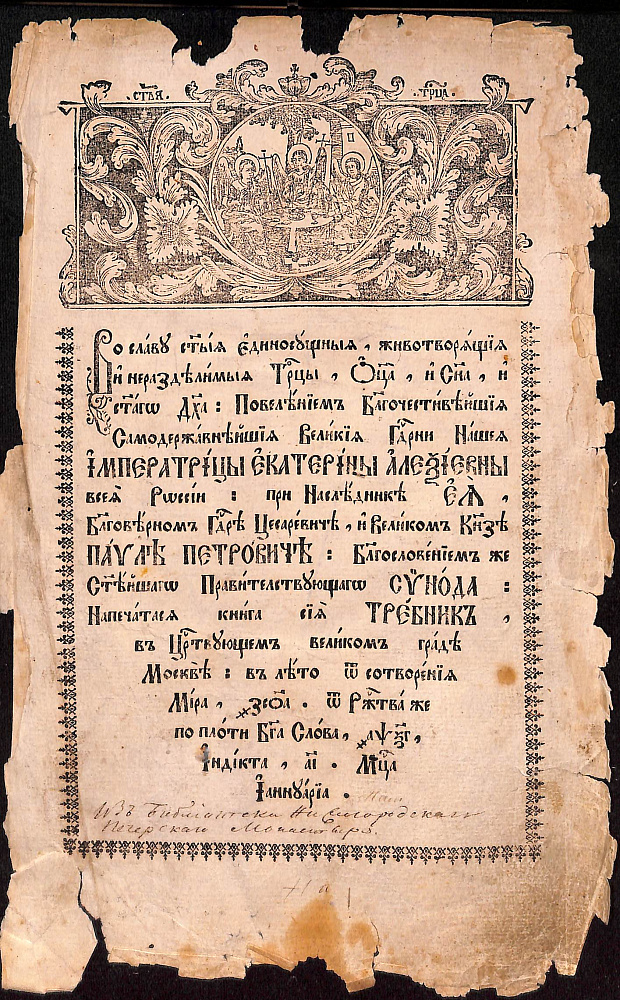 СТ҃ЫѦ. ТРЦ҃А.
Во сла́ву ст҃ы́ѧ є҆диносꙋ́щныѧ , животворѧ́щїѧ
и҆ нераздѣли́мыѧ Трⷪ҇цы , Ѻ҆ц҃а̀ , и҆ Сн҃а , и҆
ст҃а́гѡ Дх҃а : Повелѣ́нїемъ Бл҃гочести́вѣйшїѧ
Самодержа́внѣйшїѧ Вели́кїѧ Гдⷭ҇рни На́шеѧ
І҆МПЕРАТРИ́ЦЫ Є҆КАТЕРИ́НЫ А҆ЛЕѮІ́ЕВНЫ
всеѧ̀ Рѡссі́и : при Наслѣ́дникѣ Є҆Ѧ̀ ,
Бл҃говѣ́рномъ Гдⷭ҇рѣ Цесаре́вичѣ , и҆ Вели́комъ Кн҃зѣ
ПА́ѴЛѢ ПЕТРО́ВИЧѢ : Бл҃гослове́нїемъ же
Ст҃ѣ́йшагѡ Прави́телствꙋющагѡ СѴНО́ДА :
Напеча́тасѧ кни́га сїѧ̀ ТРЕ́БНИКЪ ,
въ Црⷭ҇твꙋющемъ вели́комъ гра́дѣ
Москвѣ̀ : въ лѣ́то ѿ сотворе́нїѧ
Мі́ра , ҂зсѻ҃а . ѿ Ржⷭ҇тва́ же
по пло́ти Бг҃а Сло́ва , ҂аѱѯ҃г ,
І҆нді́кта , а҃і . Мцⷭ҇а
І҆аннꙋа́рїа .
Изъ Библіотеки Нижегородскаго
Печерскаго Монастыря.